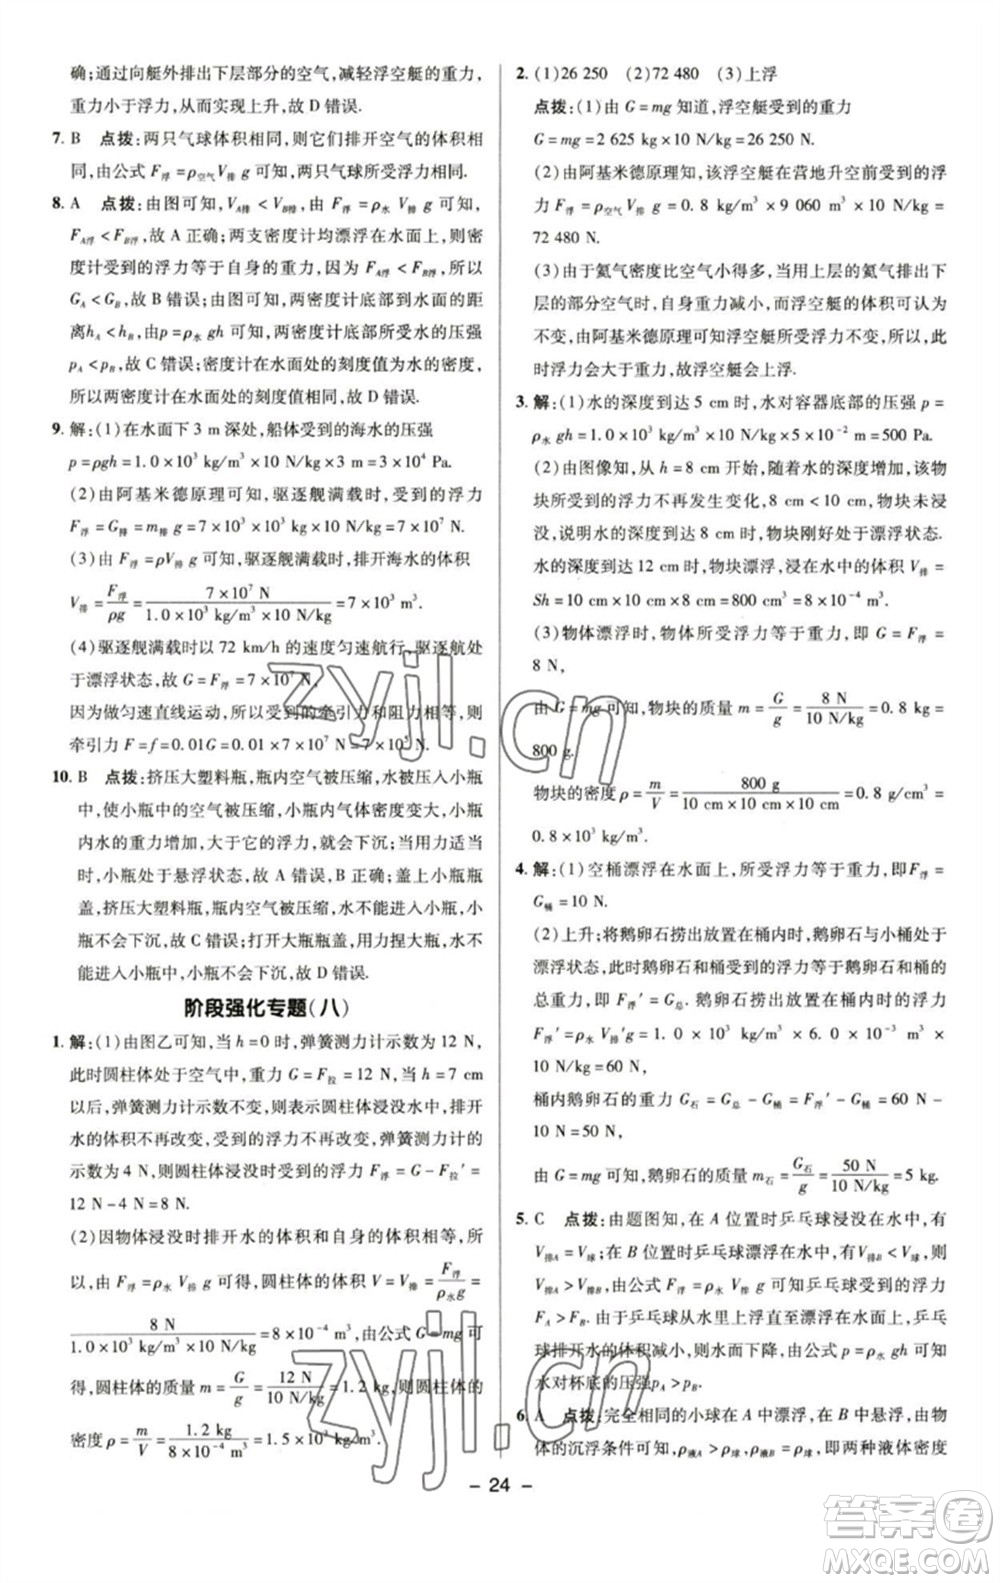 确;通过向艇外排出下层部分的空气,减轻浮空艇的重力,
重力小于浮力,从而实现上升,故 D 错误.
7. B 点拨:两只气球体积相同,则它们排开空气的体积相
同,由公式 F浮=ρ空气V排 g 可知,气球所受浮力相同.
8. A 点拨:由图可知,VA排<VB排,由 F浮=ρ水 V排 g 可知,
FA浮<FB浮,故 A 正确;两支密度计均漂浮在水面上,则密
度计受到的浮力等于自身的重力,因为 FA浮<FB浮,所以
GA<GB,故 B 错误;由图可知,密度计底部到水面的距
离hA<hB,由p=ρ水 gh 可知,密度计底部所受水的压强
pA<pB,故 C 错误;密度计在水面处的刻度值为水的密度,
所以两密度计在水面处的刻度值相等,故 D 错误.
9. 解:(1)在水面下 3 m 深处,船体受到的海水的压强
p=ρgh=1.0×10³ kg/m³×10 N/kg×3 m=3×10⁴ Pa.
(2)由阿基米德原理可知,驱逐舰满载时,受到的浮力
F浮=G排=m排 g=7×10⁶ kg×10 N/kg=7×10⁷ N.
(3)由 F浮=ρV排 g 可知,驱逐舰满载时,排开海水的体积
V排=F浮/ρg=7×10⁷ N/1.0×10³ kg/m³×10 N/kg=7×10³ m³.
(4)驱逐舰满载时以 72 km/h 的速度匀速航行时,处
于漂浮状态,故 G=F浮=7×10⁷ N.
因为做匀速直线运动,所以受到的牵引力和阻力相等,则
牵引力 F=f=0.01G=0.01×7×10⁷ N=7×10⁵ N.
10. B 点拨:挤压大塑料瓶,瓶内空气被压缩,水被压入小瓶
中,使小瓶中的空气被压缩,小瓶内气体密度变大,小瓶
内水的重力增加,大于它的浮力,小瓶下沉;当用力适当
时,小瓶处于悬浮状态,故 A 错误,B 正确;盖上小瓶瓶
盖,挤压大塑料瓶,瓶内空气被压缩,水不能进入小瓶,小
瓶不会下沉,故 C 错误;打开大瓶瓶盖,用力捏大瓶,水不
能进入小瓶中,小瓶不会下沉,故 D 错误.
阶段强化专题(八)
1. 解:(1)由图乙可知,当 h=0 时,弹簧测力计示数为 12 N,
此时圆柱体处于空气中,重力 G=F拉=12 N,当 h=7 cm
以后,弹簧测力计示数不变,则表示圆柱体浸没水中,排开
水的体积不再改变,受到的浮力不再改变,弹簧测力计的
示数为 4 N,则圆柱体浸没时受到的浮力 F浮=G-F拉′=
12 N-4 N=8 N.
(2)因物体浸没时排开水的体积和自身的体积相等,所
以,由 F浮=ρ水 V排 g 可得,圆柱体的体积 V=V排=F浮/ρ水g=
8 N/1.0×10³ kg/m³×10 N/kg=8×10⁻⁴ m³,由公式 G=mg 可
得,圆柱体的质量 m=G/g=12 N/10 N/kg=1.2 kg,圆柱体的
密度 ρ=m/V=1.2 kg/8×10⁻⁴ m³=1.5×10³ kg/m³.
2. (1)26 250 (2)72 480 (3)上浮
点拨:(1)由 G=mg 知道,浮空艇受到的重力
G=mg=2 625 kg×10 N/kg=26 250 N.
(2)由阿基米德原理知道,浮空艇在营地升空前受到的浮
力 F浮=ρ空气 V排 g=0.8 kg/m³×9 060 m³×10 N/kg=
72 480 N.
(3)由于氦气密度比空气小得多,当上层的氦气排出下
层的部分空气时,自身重力减小,而浮空艇的体积可认为
不变,由阿基米德原理可知浮空艇所受浮力不变,所以,此
时浮力会大于重力,故浮空艇会上浮.
3. 解:(1)水的深度到达 5 cm 时,水对容器底部的压强 p=
ρ水 gh=1.0×10³ kg/m³×10 N/kg×5×10⁻² m=500 Pa.
(2)由图像知,从 h=8 cm 开始,随着水的深度增加,物
块所受到的浮力不再发生变化,8 cm<10 cm,物块未浸
没,说明水的深度到达 8 cm 时,物块刚好处于漂浮状态.
水的深度到达 12 cm 时,物块漂浮,浸在水中的体积 V排=
Sh=10 cm×10 cm×8 cm=800 cm³=8×10⁻⁴ m³.
(3)物体漂浮时,物体所受浮力等于重力,即 G=F浮=
8 N,
由 G=mg 可知,物块的质量 m=G/g=8 N/10 N/kg=0.8 kg=
800 g.
物块的密度 ρ=m/V=800 g/10 cm×10 cm×10 cm=0.8 g/cm³=
0.8×10³ kg/m³.
4. 解:(1)空桶漂浮在水面上,所受浮力等于重力,即F浮=
G桶=10 N.
(2)上升;将鹅卵石捞出放置在桶内时,鹅卵石与小桶处于
漂浮状态,此时鹅卵石和桶受到的浮力等于鹅卵石和桶的
总重力,即 F浮′=G总.鹅卵石捞出放置在桶内时的浮力
F浮′=ρ水 V排′g=1.0×10³ kg/m³×6.0×10⁻³ m³×
10 N/kg=60 N,
桶内鹅卵石的重力 G石=G总-G桶=F浮′-G桶=60 N-
10 N=50 N,
由 G=mg 可知,鹅卵石的质量 m石=G石/g=50 N/10 N/kg=5 kg.
5. C 点拨:由题图知,在 A 位置时乒乓球浸没在水中,有
V排A=V球;在 B 位置时乒乓球漂浮在水中,有V排B<V球,则
V排A>V排B,由公式 F浮=ρ水 V排 g 可知乒乓球受到的浮力
FA>FB.由于乒乓球从水里上浮直至漂浮在水面上,乒乓
球排开水的体积减小,则水面下降,由公式 p=ρ水 gh 可知
水对杯底的压强pA>pB.
6. A 点拨:完全相同的小球在 A 中漂浮,在 B 中悬浮,由物
体的沉浮条件可知,ρ液A>ρ球,ρ液B=ρ球,即两种液体密度
- 24 -
zyjl.cn
zyjl.cn
答案圈
MXQE.COM